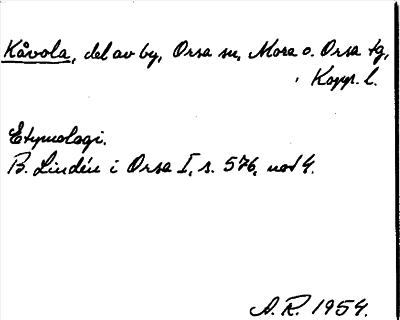 Kåvola, del av by, Orsa sn, Mora o. Orsa tg,
Kopp. l.
Etymologi.
B. Lindén i Orsa I, s. 576, not 4.
A.R. 1954.